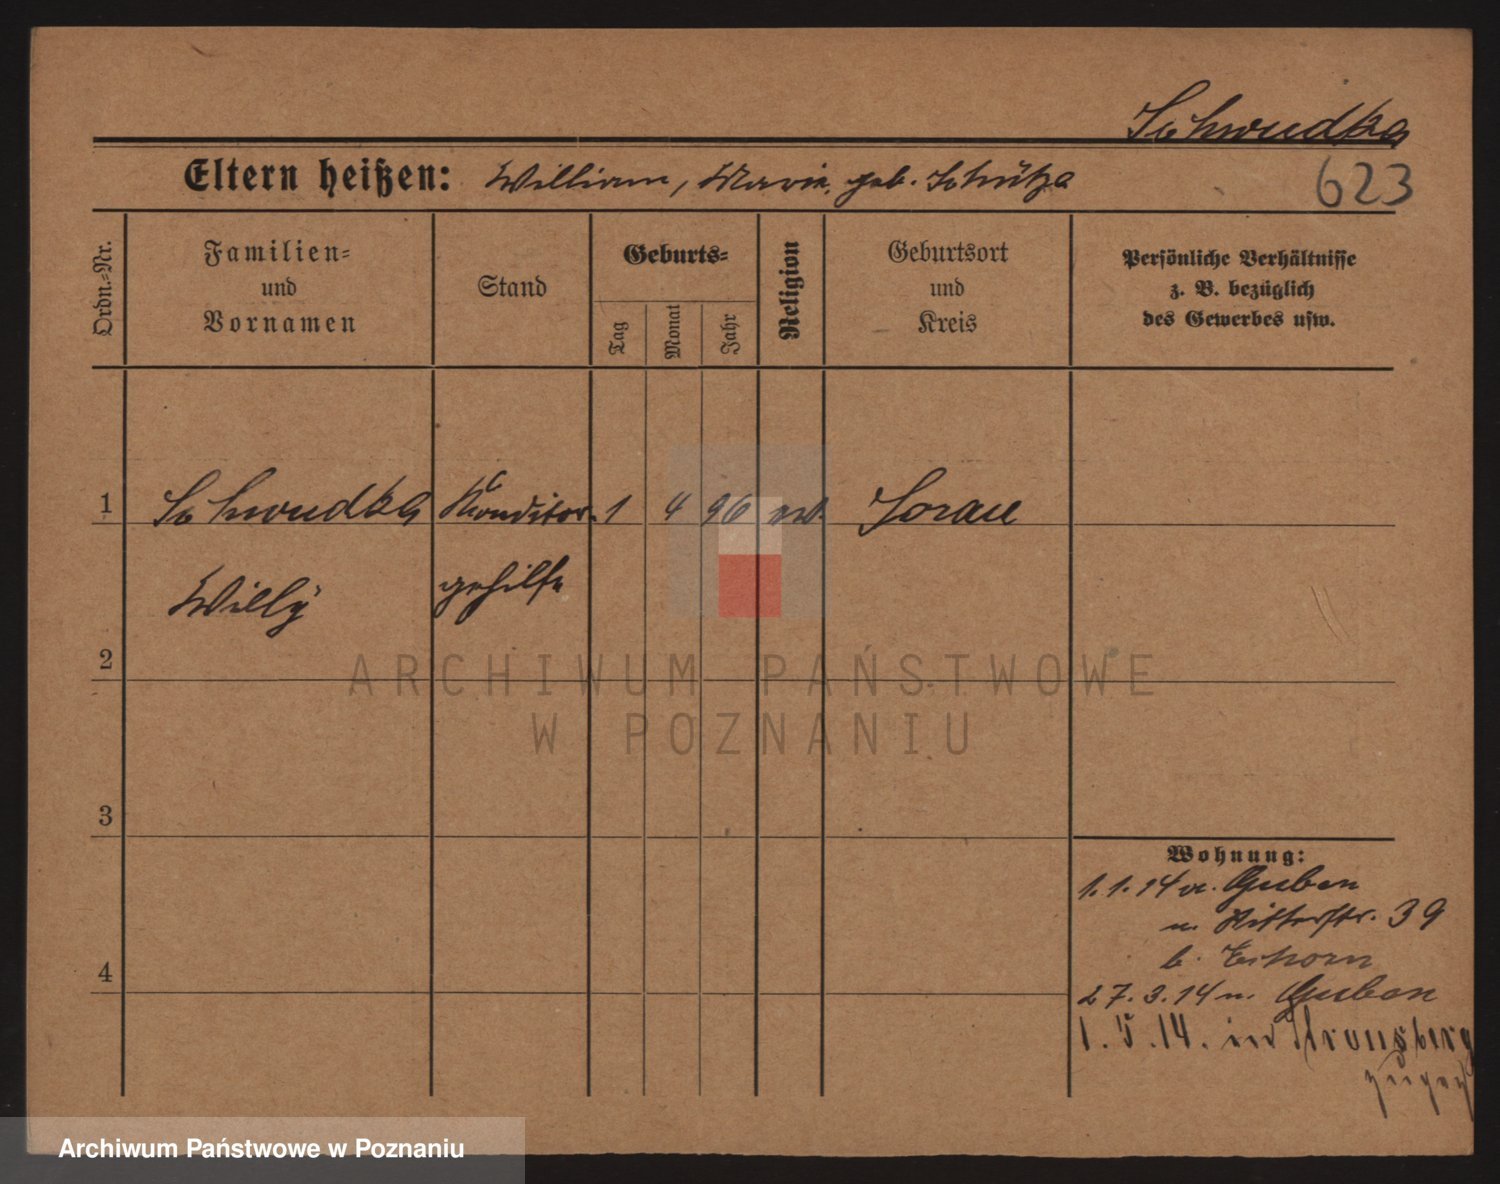 Schwudka
Eltern heißen: William, Marie, geb. Schütze
623
Ordn.-Nr.
Familien-
und
Vornamen
Stand
Geburts-
Tag
Monat
Jahr
Religion
Geburtsort
und
Kreis
Persönliche Verhältnisse
z. B. bezüglich
des Gewerbes usw.
1 Schwudka Konditor- 1 4 96 ev. Sorau
Willy gehilfe
2
3
4
Wohnung:
1.1.14 v. Guben
n. Ritterstr. 39
b.
27.3.14 n. Guben
1.5.14. in Kronsberg
ARCHIWUM PAŃSTWOWE
W POZNANIU
Archiwum Państwowe w Poznaniu